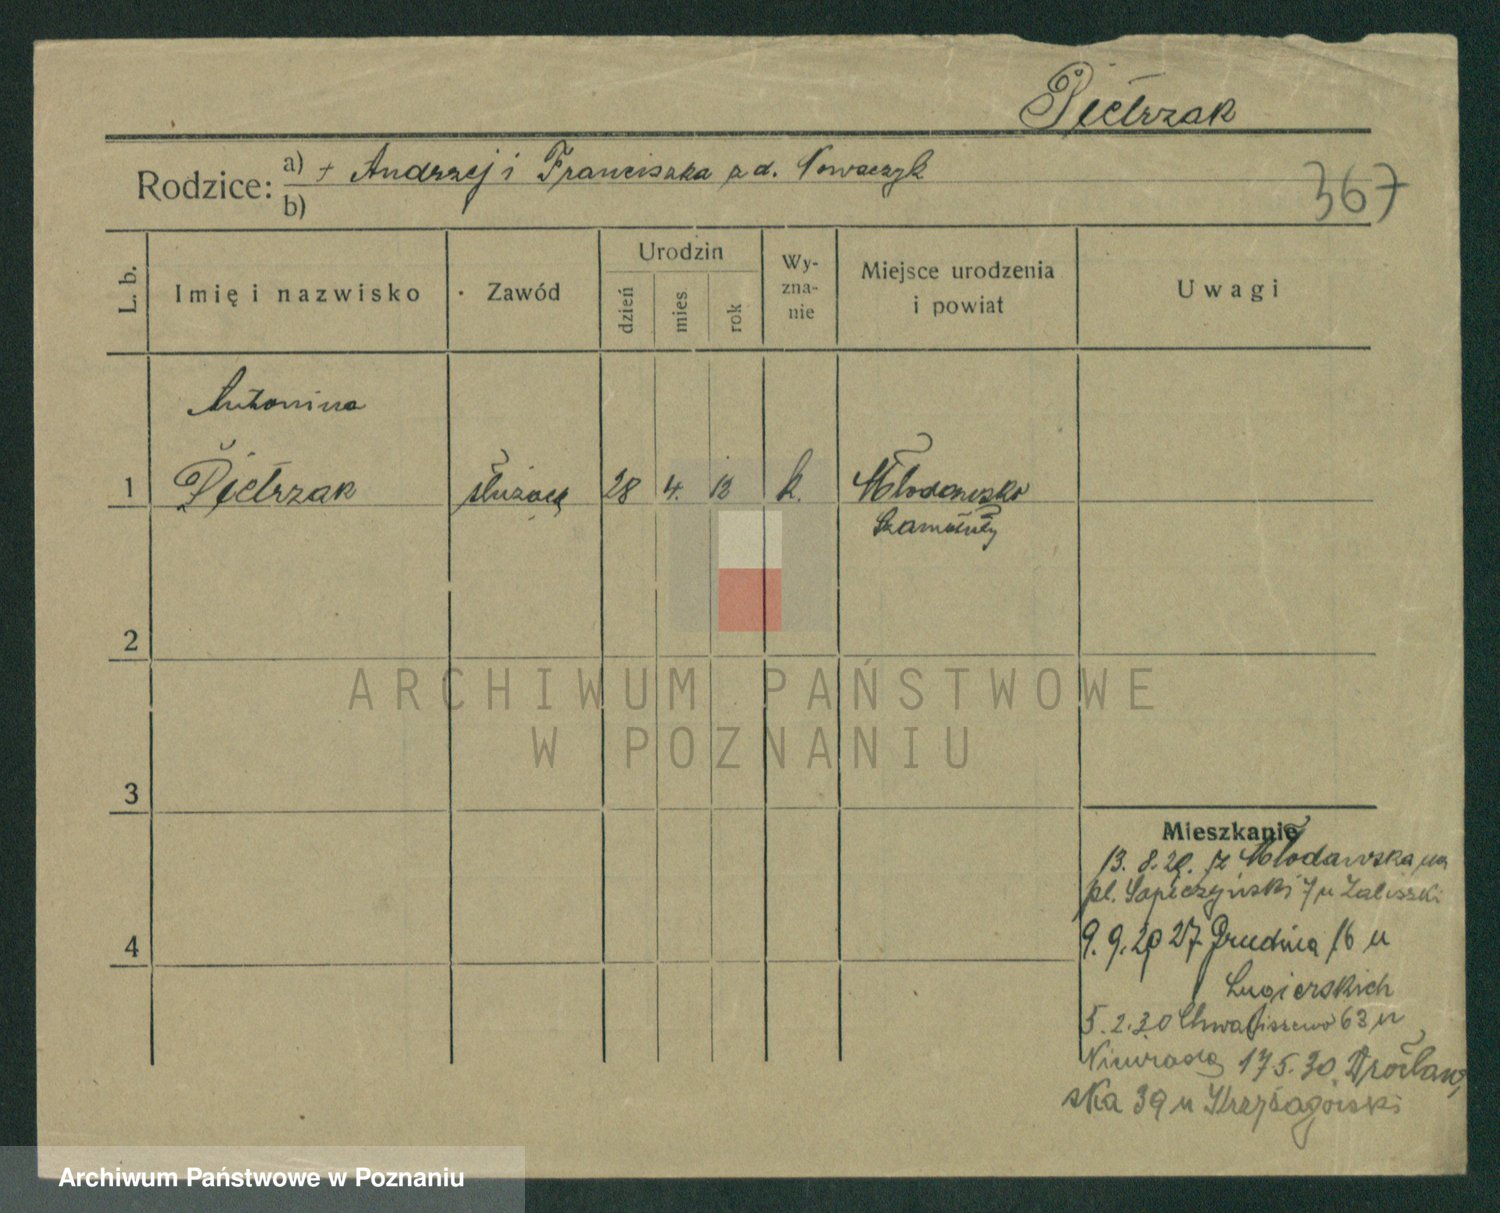 Pietrzak
Rodzice: a) + Andrzej i Franciszka z d. Nowaczyk
b)
367
L. b.
Imię i nazwisko
Zawód
Urodzin
dzień
mies
rok
Wy-
zna-
nie
Miejsce urodzenia
i powiat
Uwagi
Antonina
1 Pietrzak służącą 28 4. 12 k. Młodawsko
Szamotuły
2
ARCHIWUM PAŃSTWOWE
W POZNANIU
3
Mieszkanie
13. 8. 29. z Młodawska na
pl. Sapieżyński 7 u Zaliszki
4
9. 9. 29 27 Grudnia 16 u
5. 2. 30 Chwaliszewo 63 u
17 5. 30. Wrocław
ska 39 u
Archiwum Państwowe w Poznaniu